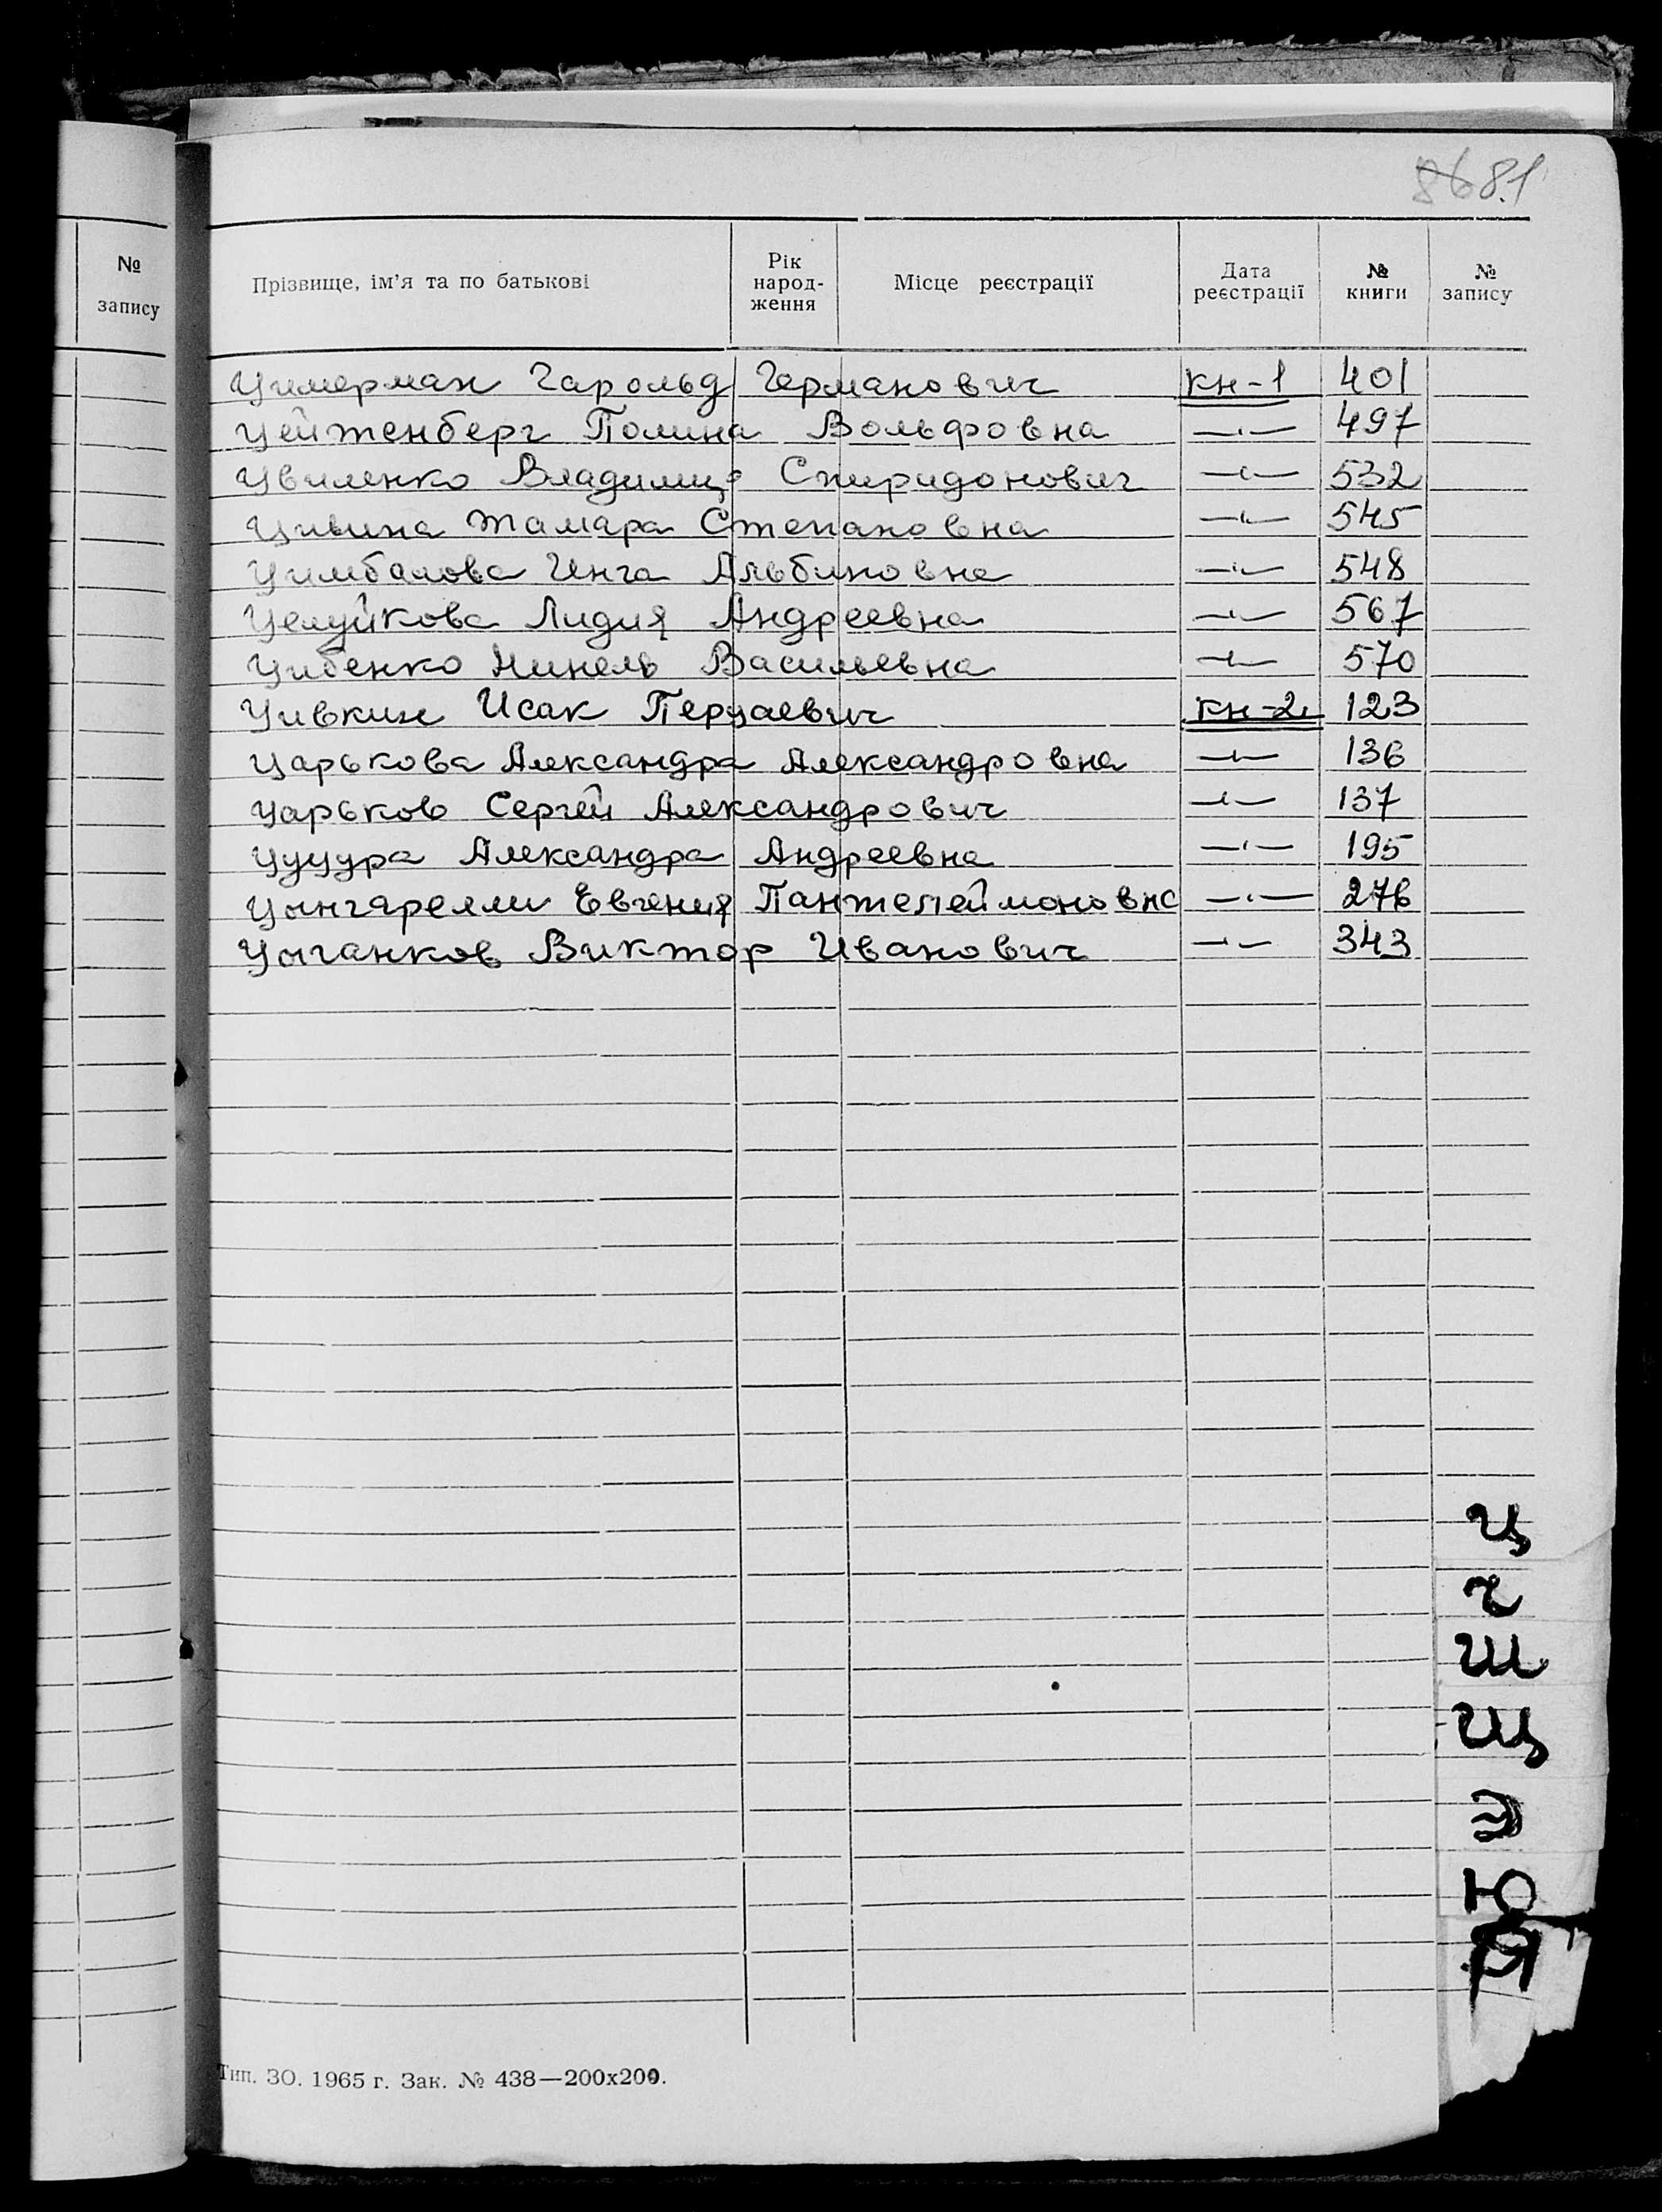 8681
№ запису
Прізвище, ім'я та по батькові Рік народ- ження Місце реєстрації Дата реєстрації № книги № запису
Цимерман Гарольд Германович кн-1 401
Цейтенберг Полина Вольфовна —"— 497
Цвиленко Владимир Спиридонович —"— 532
Цивина Тамара Степановна —"— 545
Цимбалова Инга Альбиновна —"— 548
Целуйкова Лидия Андреевна —"— 567
Цибенко Нинель Васильевна —"— 570
Цивкин Исак Перцаевич кн-2 123
Царькова Александра Александровна —"— 136
Царьков Сергей Александрович —"— 137
Цуцура Александра Андреевна —"— 195
Цынгарелли Евгения Пантелеймоновна —"— 276
Цыганков Виктор Иванович —"— 343
Ц
Ч
Ш
Щ
Э
Ю
Я
Тип. ЗО. 1965 г. Зак. № 438—200х200.